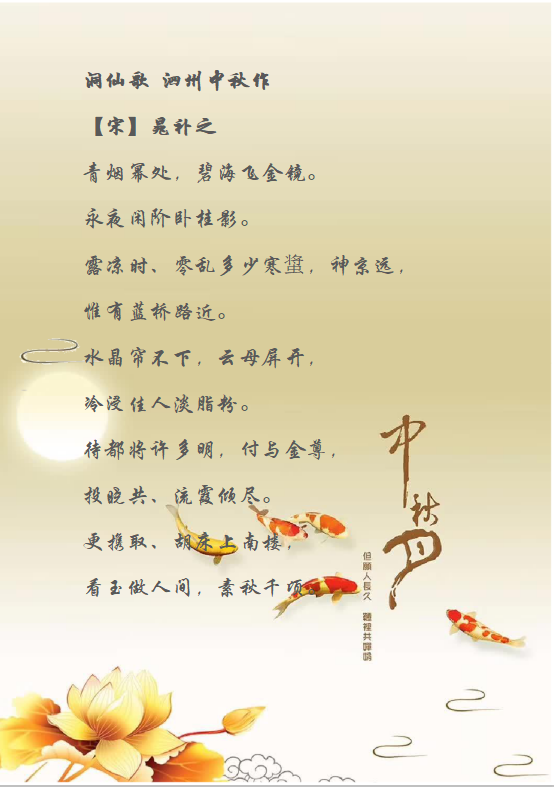 洞仙歌 泗州中秋作
【宋】晁补之
青烟幂处，碧海飞金镜。
永夜闲阶卧桂影。
露凉时、零乱多少寒螀，神京远，
惟有蓝桥路近。
水晶帘不下，云母屏开，
冷浸佳人淡脂粉。
待都将许多明，付与金尊，
投晓共、流霞倾尽。
更携取、胡床上南楼，
看玉做人间，素秋千顷。
中秋月
但願人長久 千里共嬋娟